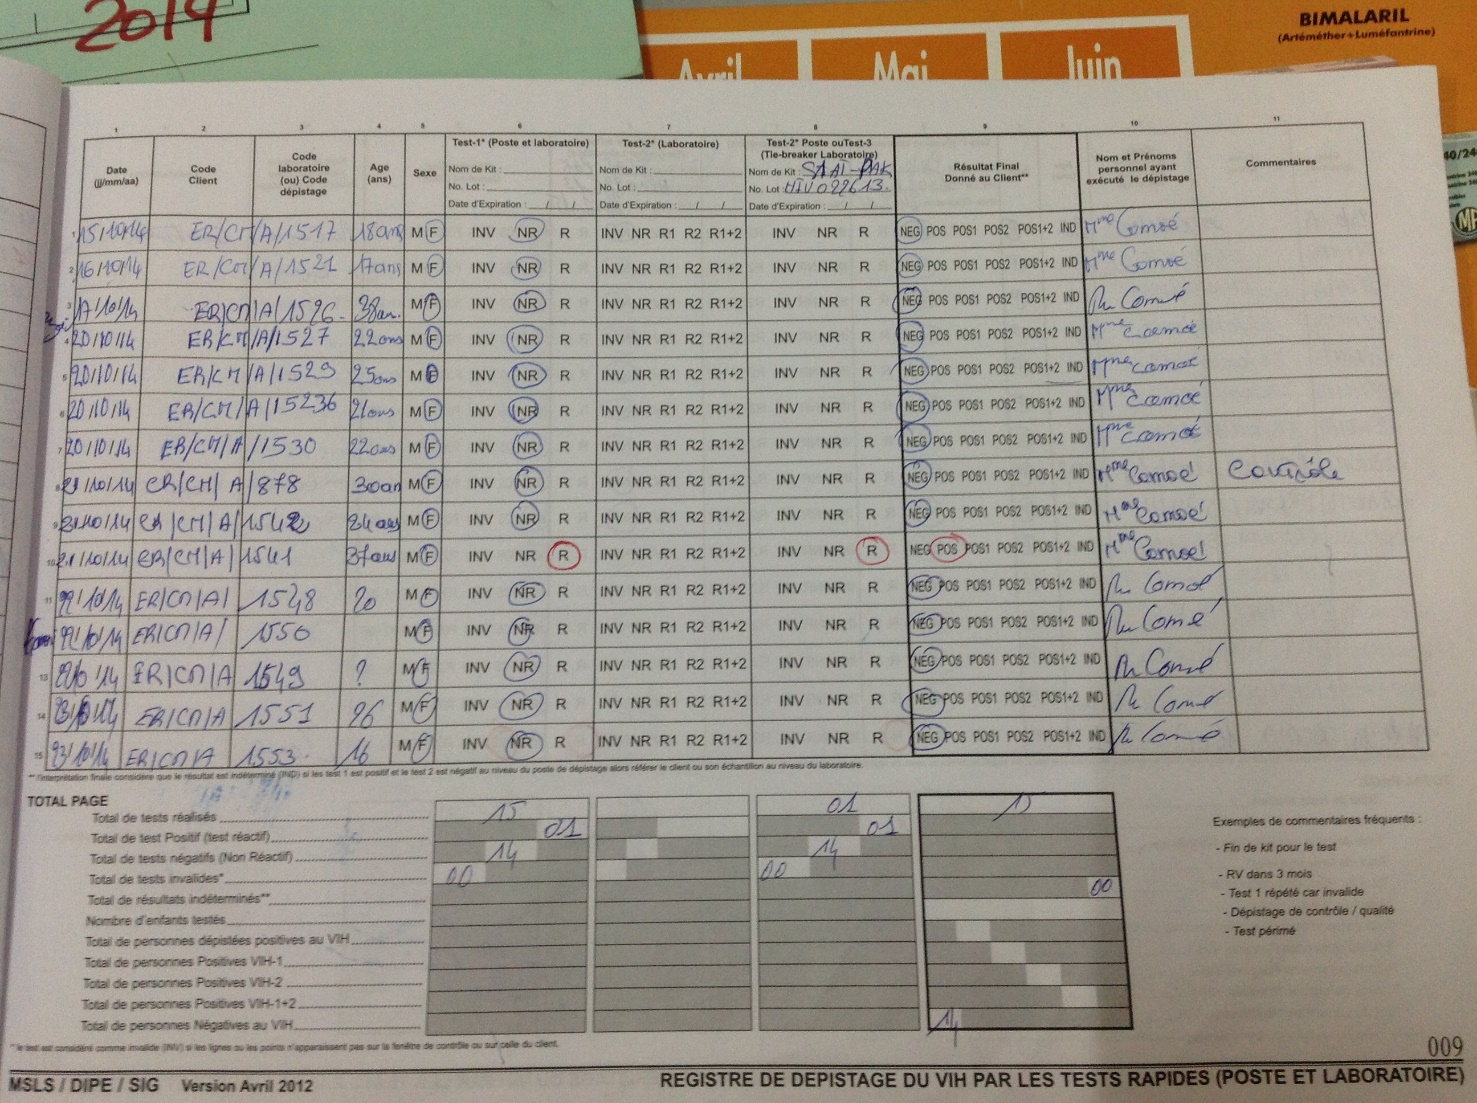 2014
BIMALARIL
(Artéméther+Luméfantrine)
Avril Mai Juin
1 2 3 4 5 6 7 8 9 10 11
Date (jj/mm/aa) Code Client Code laboratoire (ou) Code dépistage Age (ans) Sexe Test-1* (Poste et laboratoire) Test-2* (Laboratoire) Test-2* Poste ouTest-3 (Tie-breaker Laboratoire) Résultat Final Donné au Client** Nom et Prénoms personnel ayant exécuté le dépistage Commentaires
Nom de Kit : Nom de Kit : Nom de Kit : STAT-PAK
No. Lot : No. Lot : No. Lot : HIV022613.
Date d'Expiration : / / Date d'Expiration : / / Date d'Expiration : / /
1 15/10/14 ER/CM/A/1517 18ans M F INV NR R INV NR R1 R2 R1+2 INV NR R NEG POS POS1 POS2 POS1+2 IND Mme Comoé
2 16/10/14 ER/CM/A/1521 17ans M F INV NR R INV NR R1 R2 R1+2 INV NR R NEG POS POS1 POS2 POS1+2 IND Mme Comoé
3 17/10/14 ER/CM/A/1526 38an. M F INV NR R INV NR R1 R2 R1+2 INV NR R NEG POS POS1 POS2 POS1+2 IND Comoé
4 20/10/14 ER/CM/A/1527 22ans M F INV NR R INV NR R1 R2 R1+2 INV NR R NEG POS POS1 POS2 POS1+2 IND Mme Comoé
5 20/10/14 ER/CM/A/1529 25ans M F INV NR R INV NR R1 R2 R1+2 INV NR R NEG POS POS1 POS2 POS1+2 IND Mme Comoé
6 20/10/14 ER/CM/A/15236 21ans M F INV NR R INV NR R1 R2 R1+2 INV NR R NEG POS POS1 POS2 POS1+2 IND Mme Comoé
7 20/10/14 ER/CM/A/1530 22ans M F INV NR R INV NR R1 R2 R1+2 INV NR R NEG POS POS1 POS2 POS1+2 IND Mme Comoé
8 21/10/14 ER/CM/A/878 30an M F INV NR R INV NR R1 R2 R1+2 INV NR R NEG POS POS1 POS2 POS1+2 IND Mme Comoé Contrôle
9 21/10/14 ER/CM/A/1542 24ans M F INV NR R INV NR R1 R2 R1+2 INV NR R NEG POS POS1 POS2 POS1+2 IND Mme Comoé
10 21/10/14 ER/CM/A/1541 37ans M F INV NR R INV NR R1 R2 R1+2 INV NR R NEG POS POS1 POS2 POS1+2 IND Mme Comoé
11 22/10/14 ER/CM/A/ 1548 20 M F INV NR R INV NR R1 R2 R1+2 INV NR R NEG POS POS1 POS2 POS1+2 IND Comoé
22/10/14 ER/CM/A/ 1550 M F INV NR R INV NR R1 R2 R1+2 INV NR R NEG POS POS1 POS2 POS1+2 IND Comoé
13 22/10/14 ER/CM/A 1549 ? M F INV NR R INV NR R1 R2 R1+2 INV NR R NEG POS POS1 POS2 POS1+2 IND Comoé
14 23/10/14 ER/CM/A 1551 26 M F INV NR R INV NR R1 R2 R1+2 INV NR R NEG POS POS1 POS2 POS1+2 IND Comoé
15 23/10/14 ER/CM/A 1553. 16 M F INV NR R INV NR R1 R2 R1+2 INV NR R NEG POS POS1 POS2 POS1+2 IND Comoé
** l'interprétation finale considère que le résultat est indéterminé (IND) si les test 1 est positif et le test 2 est négatif au niveau du poste de dépistage alors référer le client ou son échantillon au niveau du laboratoire.
TOTAL PAGE
Total de tests réalisés 15 01 15
Total de test Positif (test réactif) 01 01
Total de tests négatifs (Non Réactif) 14 14
Total de tests invalides* 00 00
Total de résultats indéterminés** 00
Nombre d'enfants testés
Total de personnes dépistées positives au VIH
Total de personnes Positives VIH-1
Total de personnes Positives VIH-2
Total de personnes Positives VIH-1+2
Total de personnes Négatives au VIH 14
Exemples de commentaires fréquents :
- Fin de kit pour le test
- RV dans 3 mois
- Test 1 répété car invalide
- Dépistage de contrôle / qualité
- Test périmé
* le test est considéré comme invalide (INV) si les lignes ou les points n'apparaissent pas sur la fenêtre de contrôle ou sur celle du client.
009
MSLS / DIPE / SIG Version Avril 2012
REGISTRE DE DEPISTAGE DU VIH PAR LES TESTS RAPIDES (POSTE ET LABORATOIRE)